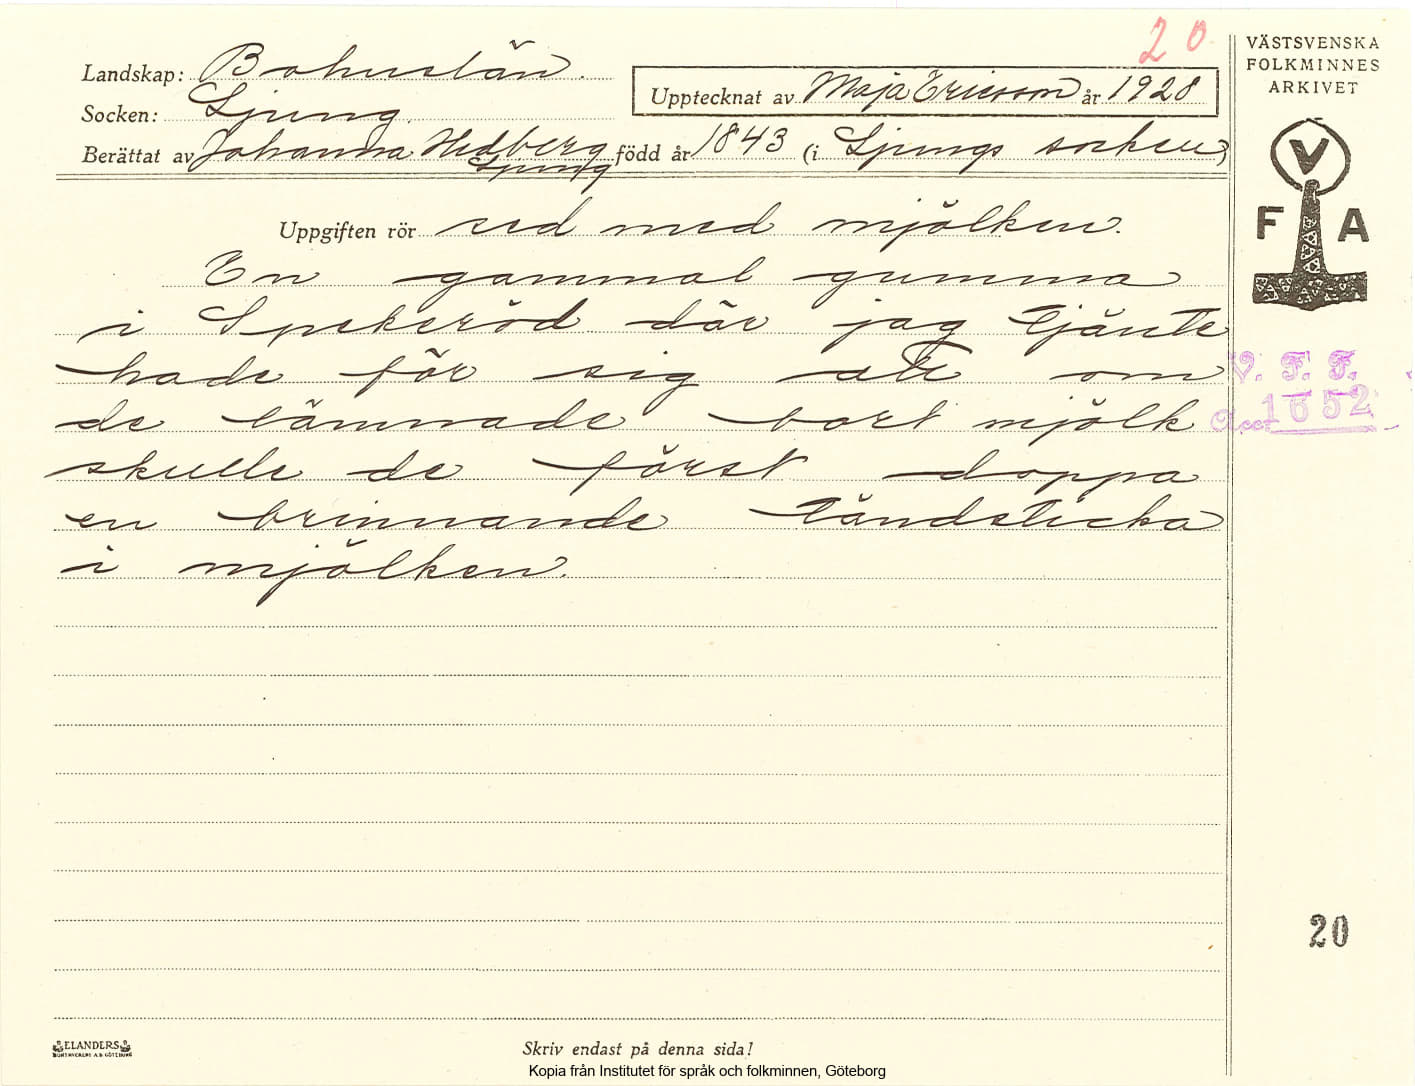 20
VÄSTSVENSKA
FOLKMINNES
ARKIVET
Landskap: Bohuslän.
Upptecknat av Maja Ericsson år 1928
Socken: Ljung.
Berättat av Johanna Hedberg född år 1843 (i Ljungs socken)
Ljung
V
F A
Uppgiften rör sed med mjölken.
En gammal gumma
i Spekeröd där jag tjänte
hade för sig att om
de lämnade bort mjölk
skulle de först doppa
en brinnande tändsticka
i mjölken.
V. F. F.
Acc. 1652
20
ELANDERS
BOKTRYCKERI A.B. GÖTEBORG
Skriv endast på denna sida!
Kopia från Institutet för språk och folkminnen, Göteborg